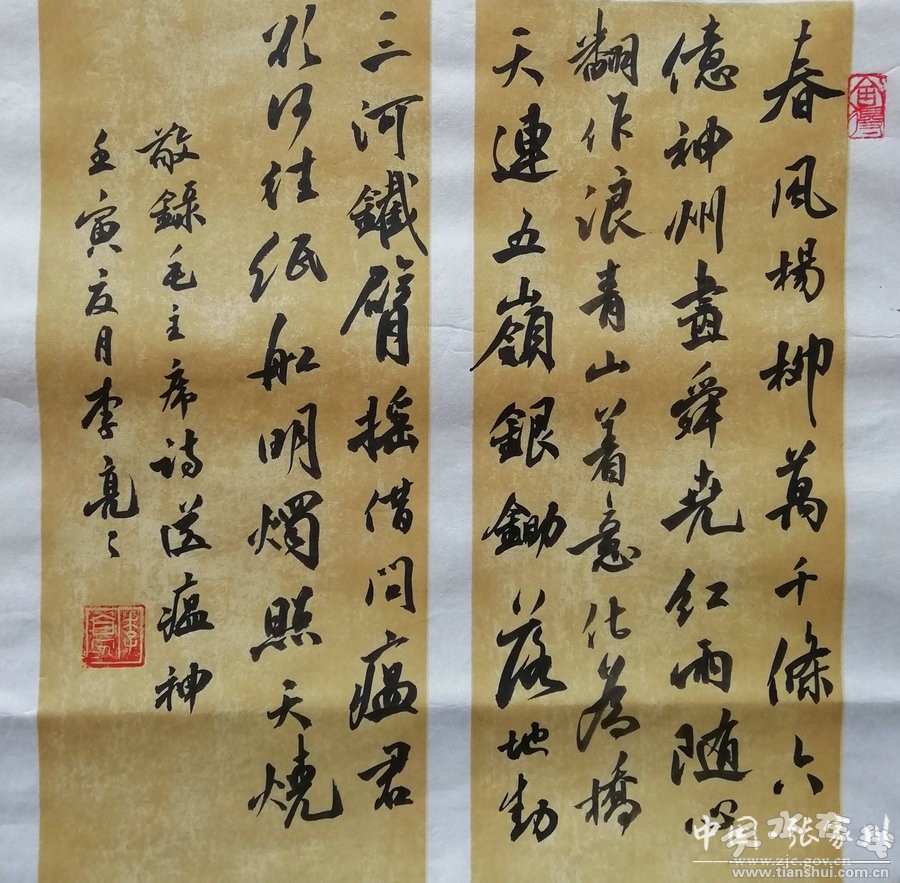 春風楊柳萬千條六
億神州盡舜堯紅雨随心
翻作浪青山着意化為橋
天連五嶺銀鋤落地動
三河鐵臂摇借問瘟君
欲何往纸船明燭照天燒
敬録毛主席诗送瘟神
壬寅夏月李亮々
www.zjc.gov.cn
www.tianshui.com.cn